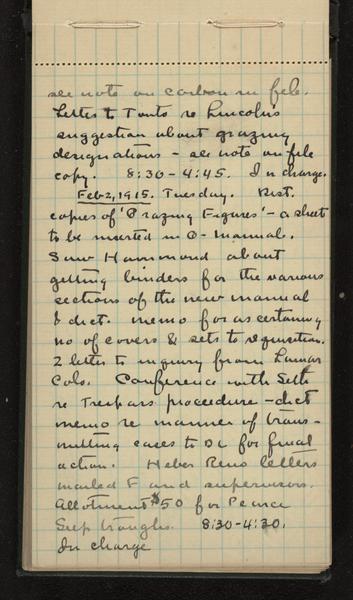 see note on carbon in file.
Letter to Tonto re Lincoln's
suggestion about grazing
designations - see note on file
copy. 8:30-4:45. In charge.
Feb 2, 1915. Tuesday. Dist.
copies of 'Grazing Figures' - a sheet
to be inserted in G-manual.
Saw Hammond about
getting binders for the various
sections of the new manual
& dict. memo for ascertaining
no of covers & sets to requisition.
2 letter to inquiry from Lamar
Colo. Conference with
re Trespass procedure - dict
memo re manner of trans-
mitting cases to DL for final
action. Heber Reno letters
mailed F and supervisors.
Allotment $50 for Pearce
troughs. 8:30-4:30.
In charge